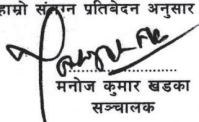 हाम्रो संलग्न प्रतिवेदन अनुसार
मनोज कुमार खडका
सञ्चालक